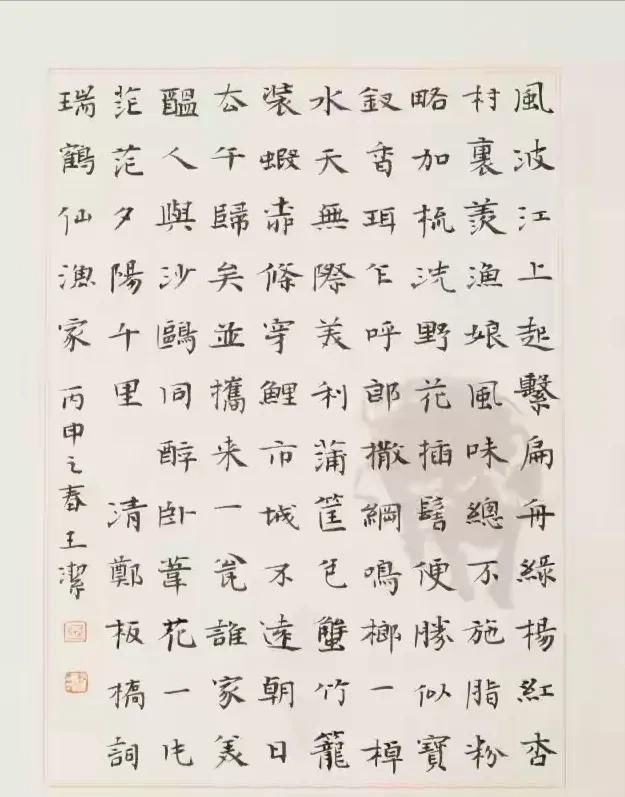 風波江上起繫扁舟綠楊紅杏
村裏羨漁娘風味總不施脂粉
略加梳洗野花插髻便勝似寶
釵香珥乍呼郎撒綱鳴榔一棹
水天無際美利蒲筐包蟹竹籠
装蝦條穿鯉市城不遠朝日
去午歸矣並攜来一瓮誰家美
醞人與沙鷗同醉卧葦花一片
茫茫夕陽千里 清鄭板橋詞
瑞鶴仙漁家 丙申之春王潔